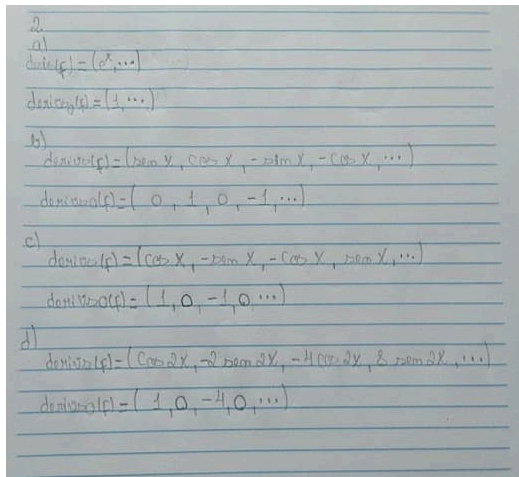 2.
a)
deriv(f) = (e^x, ...)
deriv0(f) = (1, ...)
b)
deriv(f) = (sen x, cos x, -sen x, -cos x, ...)
deriv0(f) = ( 0, 1, 0, -1, ...)
c)
deriv(f) = (cos x, -sen x, -cos x, sen x, ...)
deriv0(f) = (1, 0, -1, 0, ...)
d)
deriv(f) = (cos 2x, -2 sen 2x, -4 cos 2x, 8 sen 2x, ...)
deriv0(f) = ( 1, 0, -4, 0, ...)